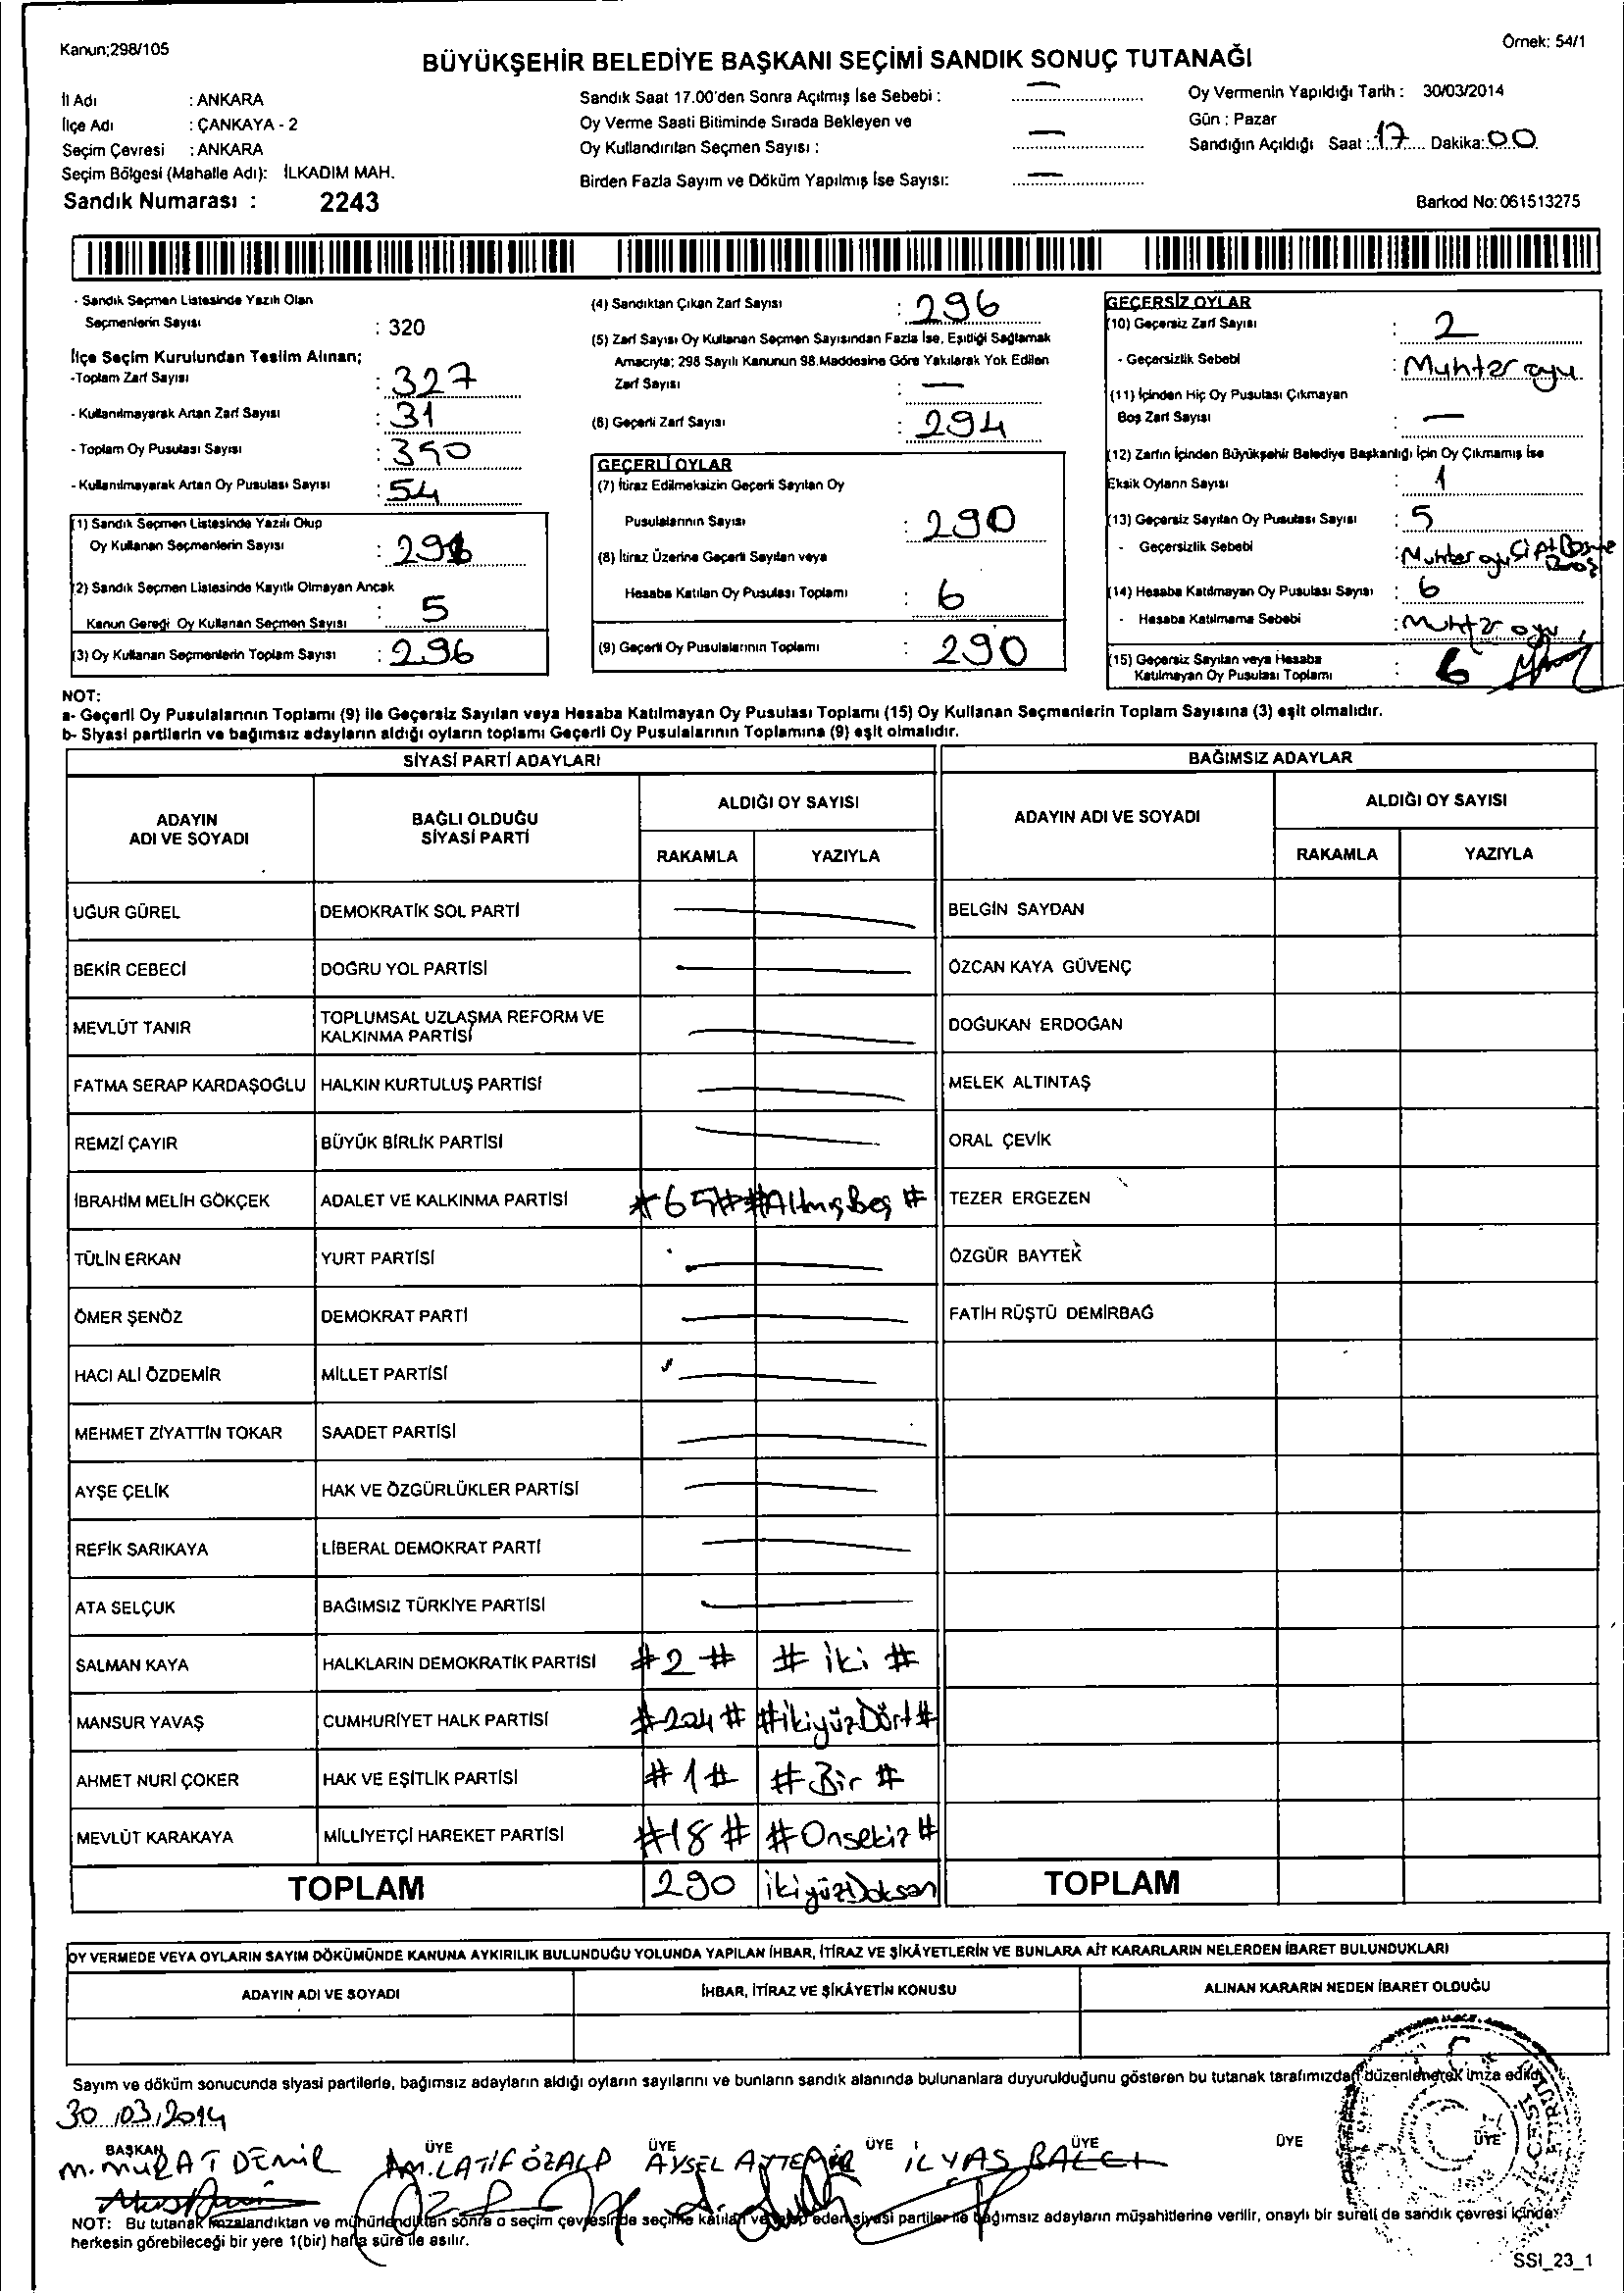 Kanun;298/105
Örnek: 54/1
BÜYÜKŞEHİR BELEDİYE BAŞKANI SEÇİMİ SANDIK SONUÇ TUTANAĞI
İl Adı : ANKARA
İlçe Adı : ÇANKAYA - 2
Seçim Çevresi : ANKARA
Seçim Bölgesi (Mahalle Adı): İLKADIM MAH.
Sandık Numarası : 2243
Sandık Saat 17.00'den Sonra Açılmış İse Sebebi : —
Oy Verme Saati Bitiminde Sırada Bekleyen ve
Oy Kullandırılan Seçmen Sayısı : —
Birden Fazla Sayım ve Döküm Yapılmış İse Sayısı: —
Oy Vermenin Yapıldığı Tarih : 30/03/2014
Gün : Pazar
Sandığın Açıldığı Saat : 17 Dakika: 00
Barkod No: 061513275
- Sandık Seçmen Listesinde Yazılı Olan
Seçmenlerin Sayısı : 320
İlçe Seçim Kurulundan Teslim Alınan;
-Toplam Zarf Sayısı : 327
- Kullanılmayarak Artan Zarf Sayısı : 31
- Toplam Oy Pusulası Sayısı : 350
- Kullanılmayarak Artan Oy Pusulası Sayısı : 54
(1) Sandık Seçmen Listesinde Yazılı Olup
Oy Kullanan Seçmenlerin Sayısı : 291
(2) Sandık Seçmen Listesinde Kayıtlı Olmayan Ancak
Kanun Gereği Oy Kullanan Seçmen Sayısı : 5
(3) Oy Kullanan Seçmenlerin Toplam Sayısı : 296
(4) Sandıktan Çıkan Zarf Sayısı : 296
(5) Zarf Sayısı Oy Kullanan Seçmen Sayısından Fazla İse, Eşitliği Sağlamak
Amacıyla; 298 Sayılı Kanunun 98.Maddesine Göre Yakılarak Yok Edilen
Zarf Sayısı : —
(6) Geçerli Zarf Sayısı : 294
GEÇERLİ OYLAR
(7) İtiraz Edilmeksizin Geçerli Sayılan Oy
Pusulalarının Sayısı : 290
(8) İtiraz Üzerine Geçerli Sayılan veya
Hesaba Katılan Oy Pusulası Toplamı : 6
(9) Geçerli Oy Pusulalarının Toplamı : 290
GEÇERSİZ OYLAR
(10) Geçersiz Zarf Sayısı : 2
- Geçersizlik Sebebi : Muhtar oyu
(11) İçinden Hiç Oy Pusulası Çıkmayan
Boş Zarf Sayısı : —
(12) Zarfın İçinden Büyükşehir Belediye Başkanlığı İçin Oy Çıkmamış İse
Eksik Oyların Sayısı : 1
(13) Geçersiz Sayılan Oy Pusulası Sayısı : 5
- Geçersizlik Sebebi : Muhtar oyu
(14) Hesaba Katılmayan Oy Pusulası Sayısı : 6
- Hesaba Katılmama Sebebi : Muhtar oyu
(15) Geçersiz Sayılan veya Hesaba
Katılmayan Oy Pusulası Toplamı : 6
NOT:
a- Geçerli Oy Pusulalarının Toplamı (9) ile Geçersiz Sayılan veya Hesaba Katılmayan Oy Pusulası Toplamı (15) Oy Kullanan Seçmenlerin Toplam Sayısına (3) eşit olmalıdır.
b- Siyasi partilerin ve bağımsız adayların aldığı oyların toplamı Geçerli Oy Pusulalarının Toplamına (9) eşit olmalıdır.
SİYASİ PARTİ ADAYLARI
BAĞIMSIZ ADAYLAR
ADAYIN ADI VE SOYADI
BAĞLI OLDUĞU SİYASİ PARTİ
ALDIĞI OY SAYISI
RAKAMLA YAZIYLA
ADAYIN ADI VE SOYADI
ALDIĞI OY SAYISI
RAKAMLA YAZIYLA
UĞUR GÜREL DEMOKRATİK SOL PARTİ — BELGİN SAYDAN
BEKİR CEBECİ DOĞRU YOL PARTİSİ — ÖZCAN KAYA GÜVENÇ
MEVLÜT TANIR TOPLUMSAL UZLAŞMA REFORM VE KALKINMA PARTİSİ — DOĞUKAN ERDOĞAN
FATMA SERAP KARDAŞOĞLU HALKIN KURTULUŞ PARTİSİ — MELEK ALTINTAŞ
REMZİ ÇAYIR BÜYÜK BİRLİK PARTİSİ — ORAL ÇEVİK
İBRAHİM MELİH GÖKÇEK ADALET VE KALKINMA PARTİSİ #65# #AltmışBeş# TEZER ERGEZEN
TÜLİN ERKAN YURT PARTİSİ — ÖZGÜR BAYTEK
ÖMER ŞENÖZ DEMOKRAT PARTİ — FATİH RÜŞTÜ DEMİRBAĞ
HACI ALİ ÖZDEMİR MİLLET PARTİSİ —
MEHMET ZİYATTİN TOKAR SAADET PARTİSİ —
AYŞE ÇELİK HAK VE ÖZGÜRLÜKLER PARTİSİ —
REFİK SARIKAYA LİBERAL DEMOKRAT PARTİ —
ATA SELÇUK BAĞIMSIZ TÜRKİYE PARTİSİ —
SALMAN KAYA HALKLARIN DEMOKRATİK PARTİSİ #2# #iki#
MANSUR YAVAŞ CUMHURİYET HALK PARTİSİ #204# #ikiyüzDört#
AHMET NURİ ÇOKER HAK VE EŞİTLİK PARTİSİ #1# #Bir#
MEVLÜT KARAKAYA MİLLİYETÇİ HAREKET PARTİSİ #18# #Onsekiz#
TOPLAM 290 ikiyüzDoksan TOPLAM
OY VERMEDE VEYA OYLARIN SAYIM DÖKÜMÜNDE KANUNA AYKIRILIK BULUNDUĞU YOLUNDA YAPILAN İHBAR, İTİRAZ VE ŞİKÂYETLERİN VE BUNLARA AİT KARARLARIN NELERDEN İBARET BULUNDUKLARI
ADAYIN ADI VE SOYADI İHBAR, İTİRAZ VE ŞİKÂYETİN KONUSU ALINAN KARARIN NEDEN İBARET OLDUĞU
Sayım ve döküm sonucunda siyasi partilerle, bağımsız adayların aldığı oyların sayılarını ve bunların sandık alanında bulunanlara duyurulduğunu gösteren bu tutanak tarafımızdan düzenlenerek imza edildi
30.03.2014
BAŞKAN ÜYE ÜYE ÜYE ÜYE ÜYE ÜYE
M. MURAT DEMİR M. LATİF ÖZALP AYSEL AYTEMİR İLYAS BALCI
NOT: Bu tutanak imzalandıktan ve mühürlendikten sonra o seçim çevresinde seçime katılan ve talep eden siyasi partiler ile bağımsız adayların müşahitlerine verilir, onaylı bir sureti de sandık çevresi içinde
herkesin görebileceği bir yere 1(bir) hafta süre ile asılır.
SSI_23_1